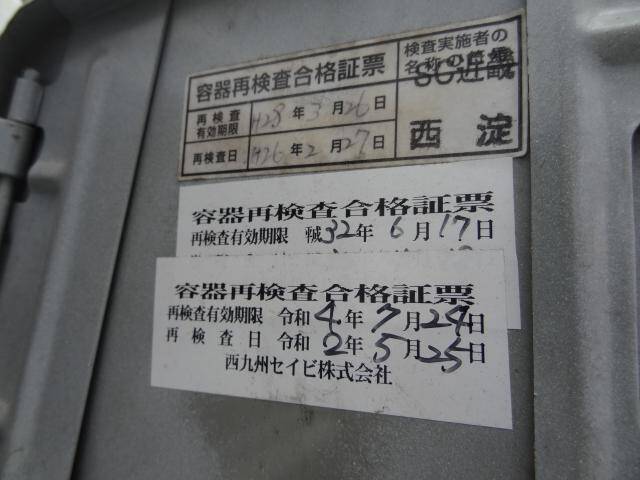 容器再検査合格証票
検査実施者の
名称の符号
SG近畿
西 淀
再検査
有効期限
H28年3月26日
再検査日
H26年2月27日
容器再検査合格証票
再検査有効期限 平成32年6月17日
容器再検査合格証票
再検査有効期限 令和4年7月24日
再検査日 令和2年5月25日
西九州セイビ株式会社